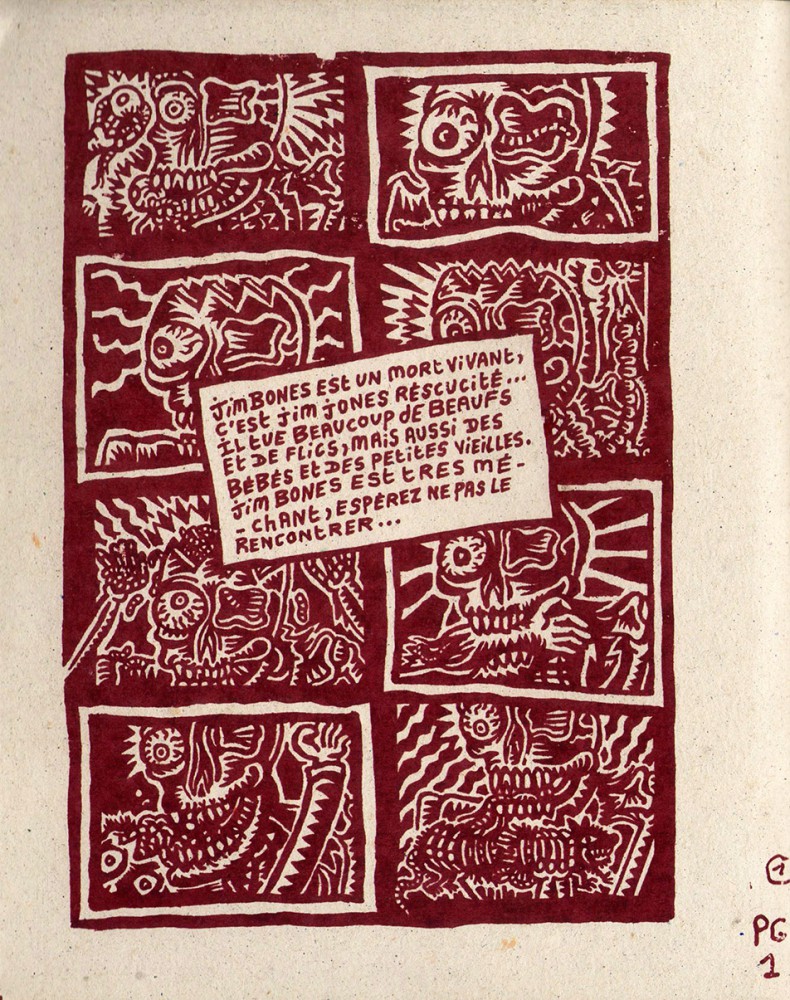 JIM BONES EST UN MORT VIVANT,
C'EST JIM JONES RÉSCUCITÉ...
IL TUE BEAUCOUP DE BEAUFS
ET DE FLICS, MAIS AUSSI DES
BÉBÉS ET DES PETITES VIEILLES.
JIM BONES EST TRES MÉ-
-CHANT, ESPÉREZ NE PAS LE
RENCONTRER...
1
PG
1